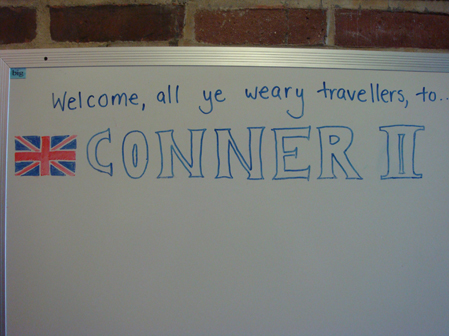 Welcome, all ye weary travellers, to...
CONNER II